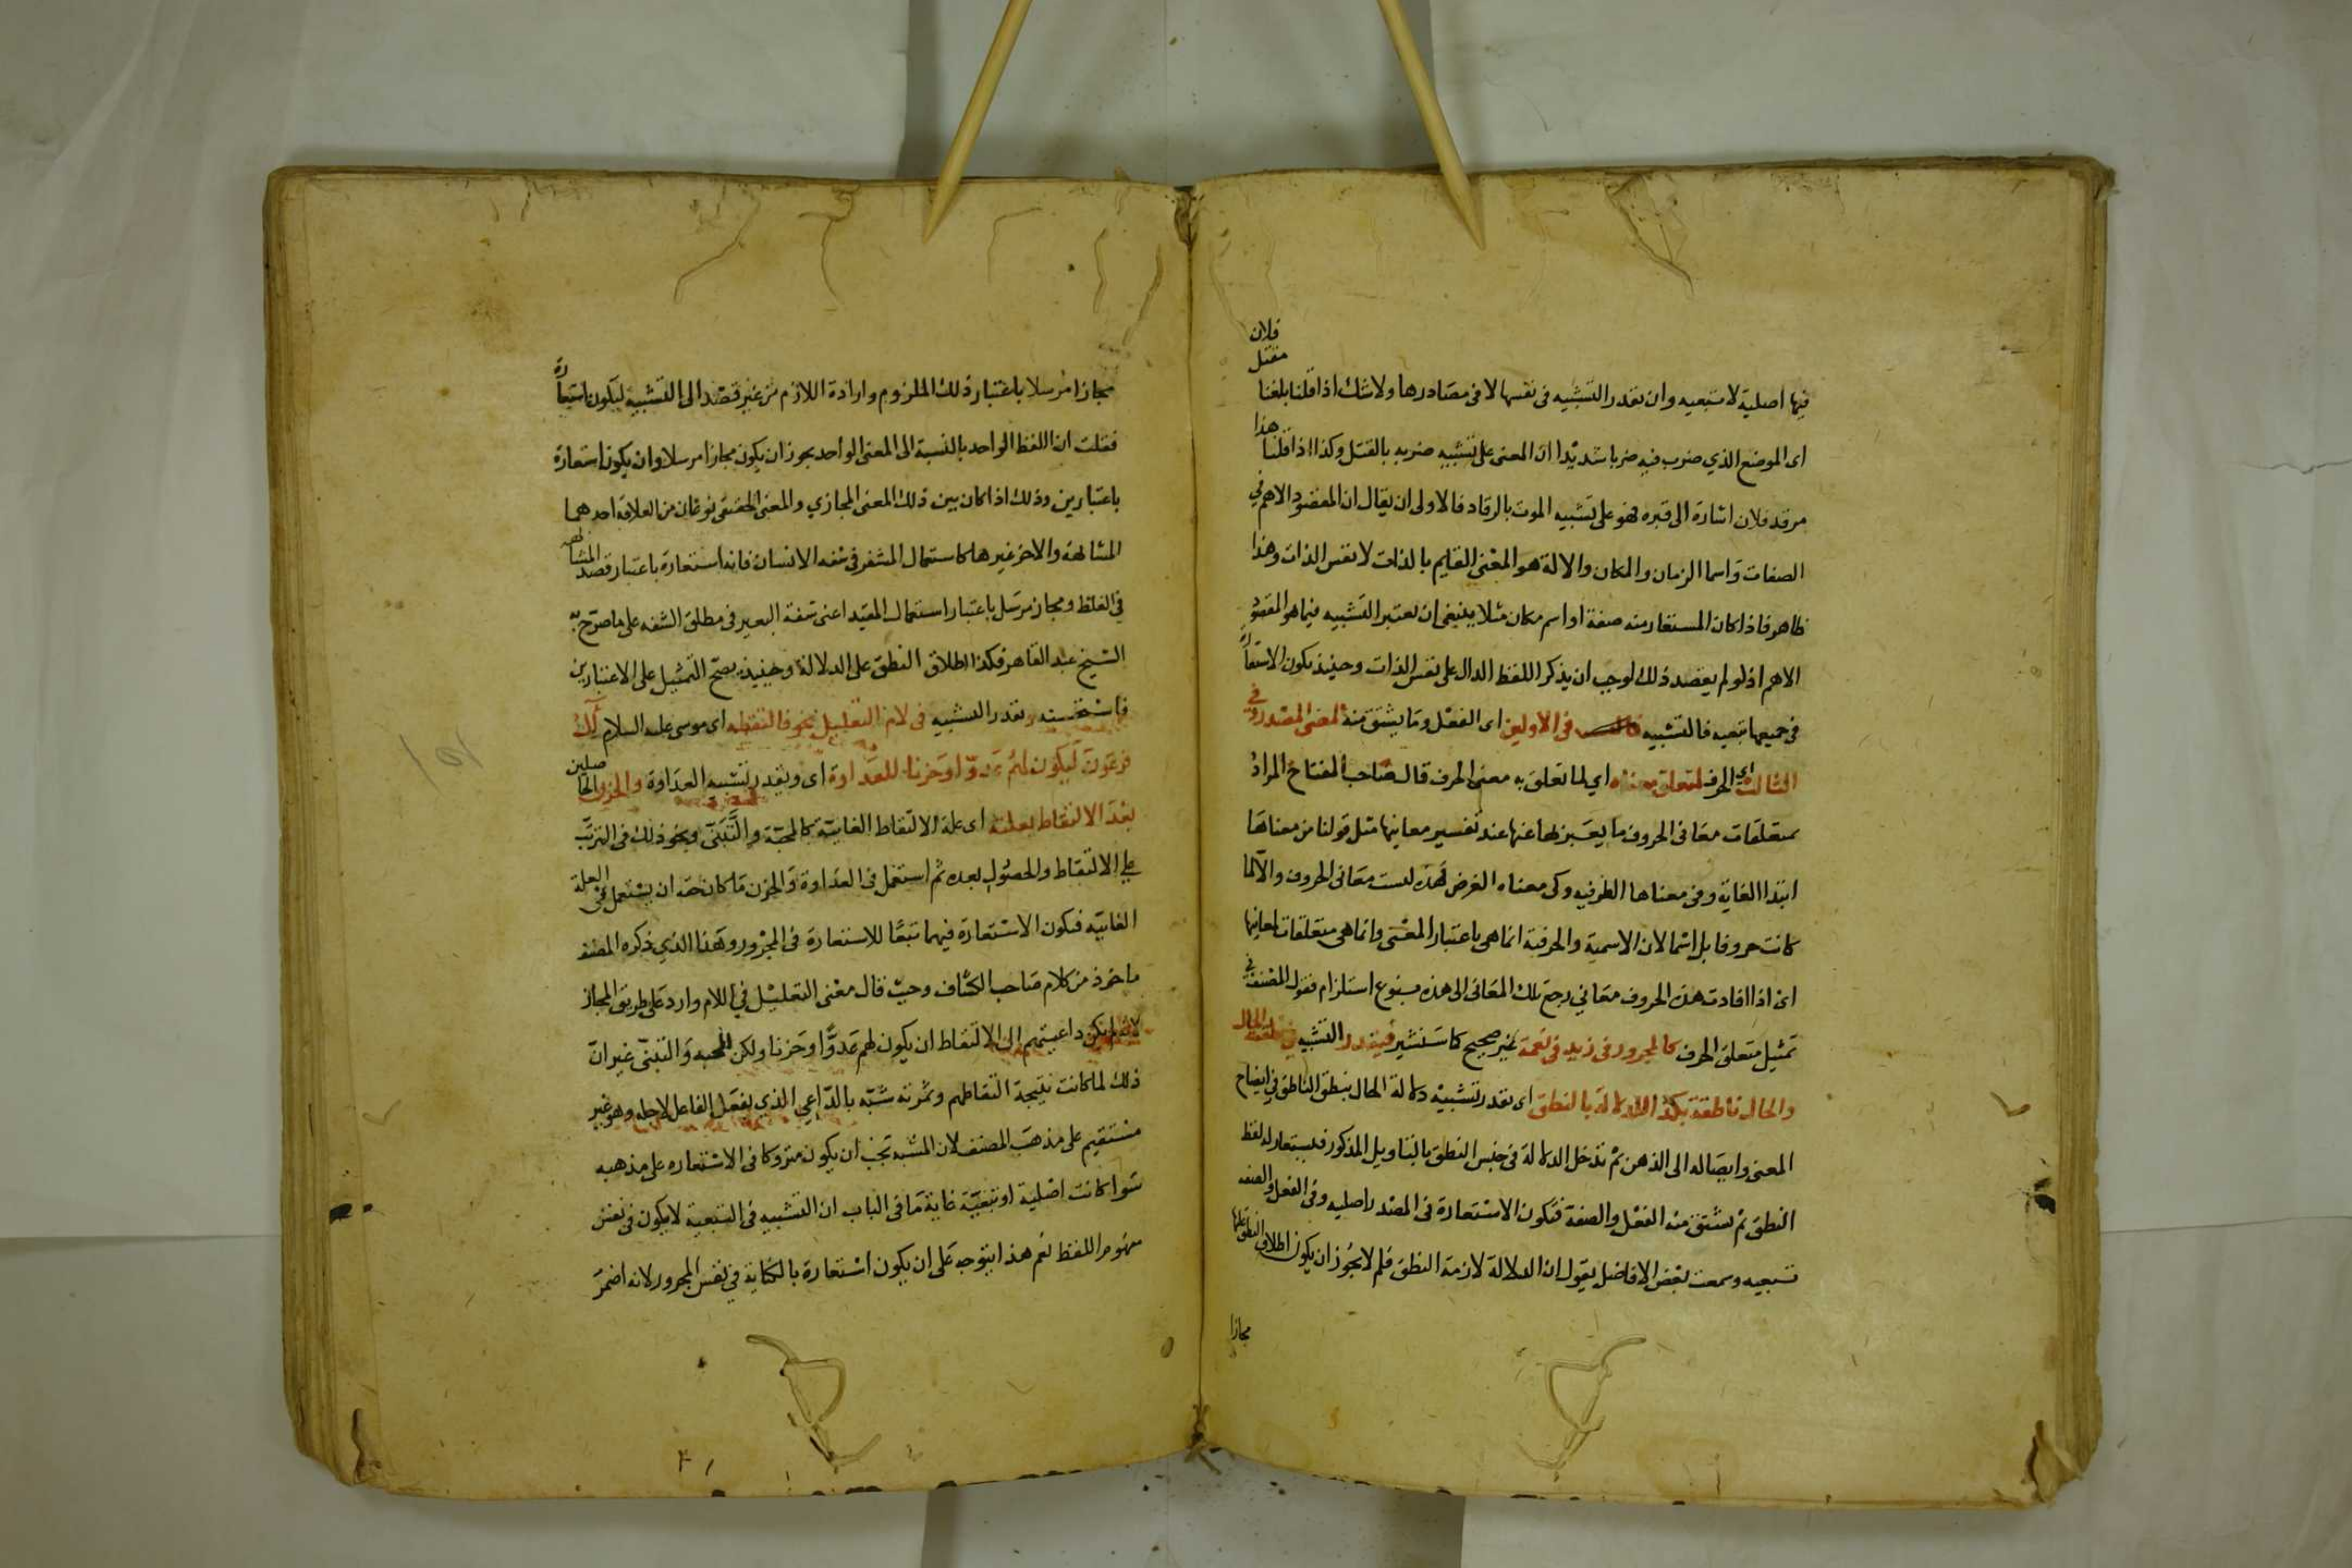 فيها اصلية لا تبعيه وان يقدر التشبيه فى نفسها لا فى مصادرها ولا شك اذا قلنا بلغنا مقتل فلان
اى الموضع الذي ضرب فيه ضربا شديدا ان المعنى على تشبيه ضربه بالقتل وكذا اذا قلنا هذا
مرقد فلان اشارة الى قبره فهو على تشبيه الموت بالرقاد فالاولى ان يقال ان المقصود الاهم في
الصفات واسما الزمان والمكان والالة هو المعنى القايم بالذات لا نفس الذات وهذا
ظاهر فاذا كان المستعار منه صفة او اسم مكان مثلا ينبغى ان يعتبر التشبيه فيما هو المقصود
الاهم اذ لو لم يقصد ذلك لوجب ان يذكر اللفظ الدال على نفس الذات وحينئذ يكون الاستعارة
فى جميعها تبعيه فالتشبيه فى الاولين اى الفعل وما يشتق منه لمعنى المصدر وفي
الثالث اى الحرف لمتعلق معناه اي لما تعلق به معنى الحرف قال صاحب المفتاح المراد
بمتعلقات معانى الحروف ما يعبر بها عنها عند تفسير معانيها مثل قولنا من معناها
ابتدا الغاية وفى معناها الظرفيه وكى معناه الغرض فهذه ليست معانى الحروف والا لما
كانت حروفا بل اسما لان الاسمية والحرفية انما هى باعتبار المعنى وانما هى متعلقات لمعانيها
اى اذا افادت هذه الحروف معاني رجع تلك المعانى الى هذه بنوع استلزام فقول المصنف في
تمثيل متعلق الحرف كالمجرور فى زيد فى نعمة غير صحيح كما سنشير فيقدر التشبيه في نطقت الحال
والحال ناطقة بكذا للدلالة بالنطق اى يقدر تشبيه دلالة الحال بنطق الناطق في ايضاح
المعنى وايصاله الى الذهن ثم تدخل الدلالة فى جنس النطق بالتاويل المذكور فيستعار له لفظ
النطق ثم يشتق منه الفعل والصفة فتكون الاستعارة فى المصدر اصليه وفى الفعل والصفه
تبعيه وسمعت بعض الافاضل يقول ان الدلالة لازمة النطق فلم لا يجوز ان يكون اطلاق النطق عليها
مجازا
مجازا مرسلا باعتبار ذلك الملزوم وارادة اللازم من غير قصد الى التشبيه ليكون استعارة
فقلت ان اللفظ الواحد بالنسبة الى المعنى الواحد يجوز ان يكون مجازا مرسلا وان يكون استعارة
باعتبارين وذلك اذا كان بين ذلك المعنى المجازي والمعنى الحقيقى نوعان من العلاقة احدهما
المشابهة والاخر غيرها كاستعمال المشفر فى شفه الانسان فانه استعارة باعتبار قصد المشابهه
في الغلظ ومجاز مرسل باعتبار استعمال المقيد اعنى شفة البعير فى مطلق الشفه على ما صرح به
الشيخ عبد القاهر فكذا اطلاق النطق على الدلالة وحينيذ يصح التمثيل على الاعتبارين
فاستحسنه ويقدر التشبيه فى لام التعليل نحو فالتقطه اى موسى عليه السلام آل
فرعون ليكون لهم عدوا وحزنا للعداوة اى ويقدر تشبيه العداوة والحزن الحاصلين
بعد الالتقاط بعلته اى علة الالتقاط الغاييّة كالمحبة والتبنّى ونحو ذلك فى الترتب
على الالتقاط والحصول بعده ثم استعمل فى العداوة والحزن ما كان حقه ان يستعمل فى العلة
الغاييه فيكون الاستعارة فيهما تبعا للاستعارة فى المجرور وهذا الذي ذكره المصنف
ماخوذ من كلام صاحب الكشاف وحيث قال معنى التعليل في اللام وارد على طريق المجاز
لانه لم يكن داعيتهم الى الالتقاط ان يكون لهم عدوّا وحزنا ولكن المحبه والتبنى غير انّ
ذلك لما كانت نتيجة التقاطهم وثمرته شبّه بالدّاعي الذي يفعل الفاعل لاجله وهو غير
مستقيم على مذهب المصنف لان المشبه يجب ان يكون متروكا فى الاستعاره على مذهبه
سوا كانت اصلية او تبعيّة غاية ما فى الباب ان التشبيه فى التبعية لا يكون فى نفس
مفهوم اللفظ نعم هذا يتوجه على ان يكون استعارة بالكناية في نفس المجرور لانه اضمر